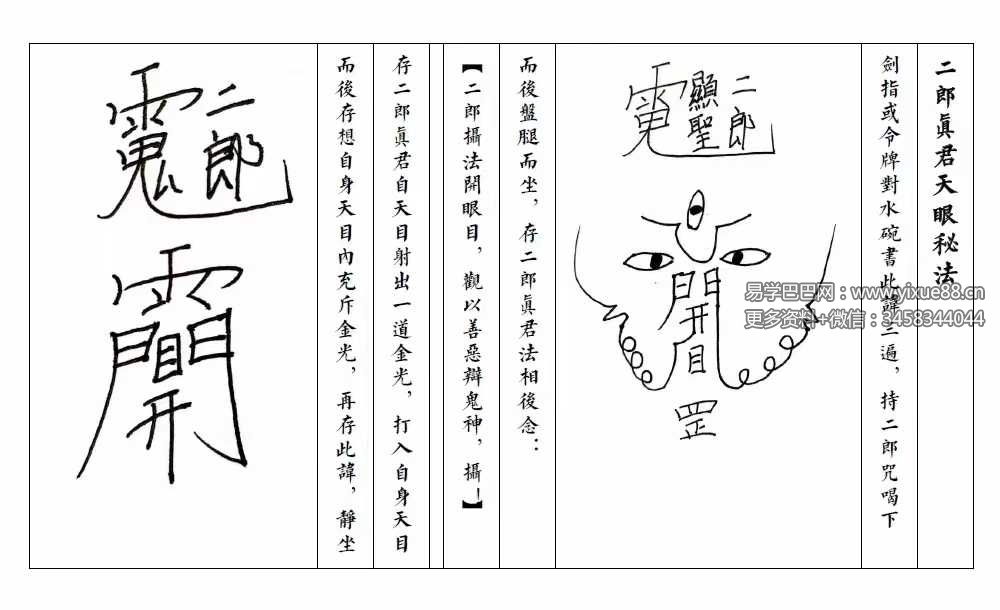 二郎眞君天眼秘法
劍指或令牌對水碗書此諱三遍，持二郎咒喝下
二郎
顯聖
開
目
罡
而後盤腿而坐，存二郎眞君法相後念：
【二郎攝法開眼目，觀以善惡辯鬼神，攝！】
存二郎眞君自天目射出一道金光，打入自身天目
而後存想自身天目內充斥金光，再存此諱，靜坐
二郎
易学巴巴网：www.yixue88.cn
更多资料+微信：3458344044